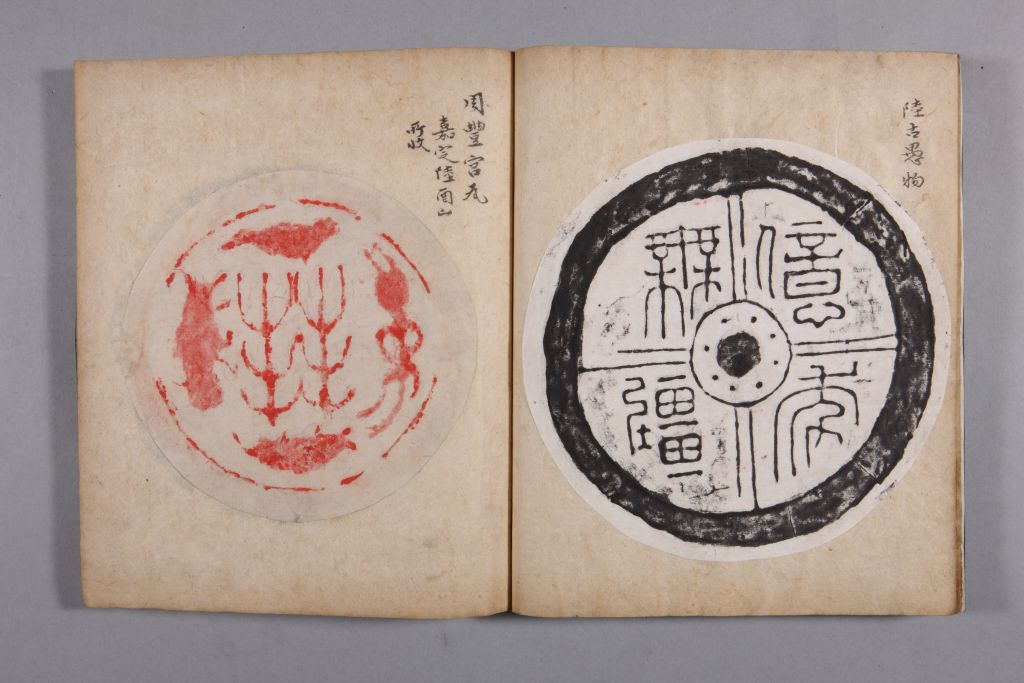 陸古愚物
億年
無疆
周豐宮瓦
嘉定陸酉山
所收